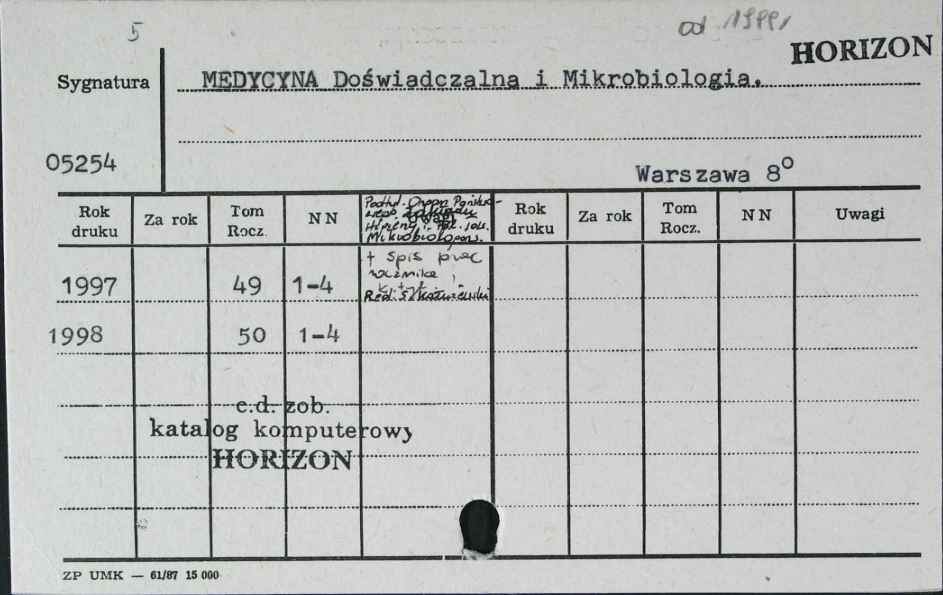 5
od 1999r
HORIZON
Sygnatura
MEDYCYNA Doświadczalna i Mikrobiologia.
05254
Warszawa 8°
Rok druku Za rok Tom Rocz. NN Uwagi Rok druku Za rok Tom Rocz. NN Uwagi
Podtyt. Organ Państwo-
wego Zakładu
Higieny i Pol. Tow.
Mikrobiologów.
+ spis prac
rocznika
1997 49 1-4
1998 50 1-4
c.d. zob.
katalog komputerowy
HORIZON
ZP UMK — 61/87 15 000